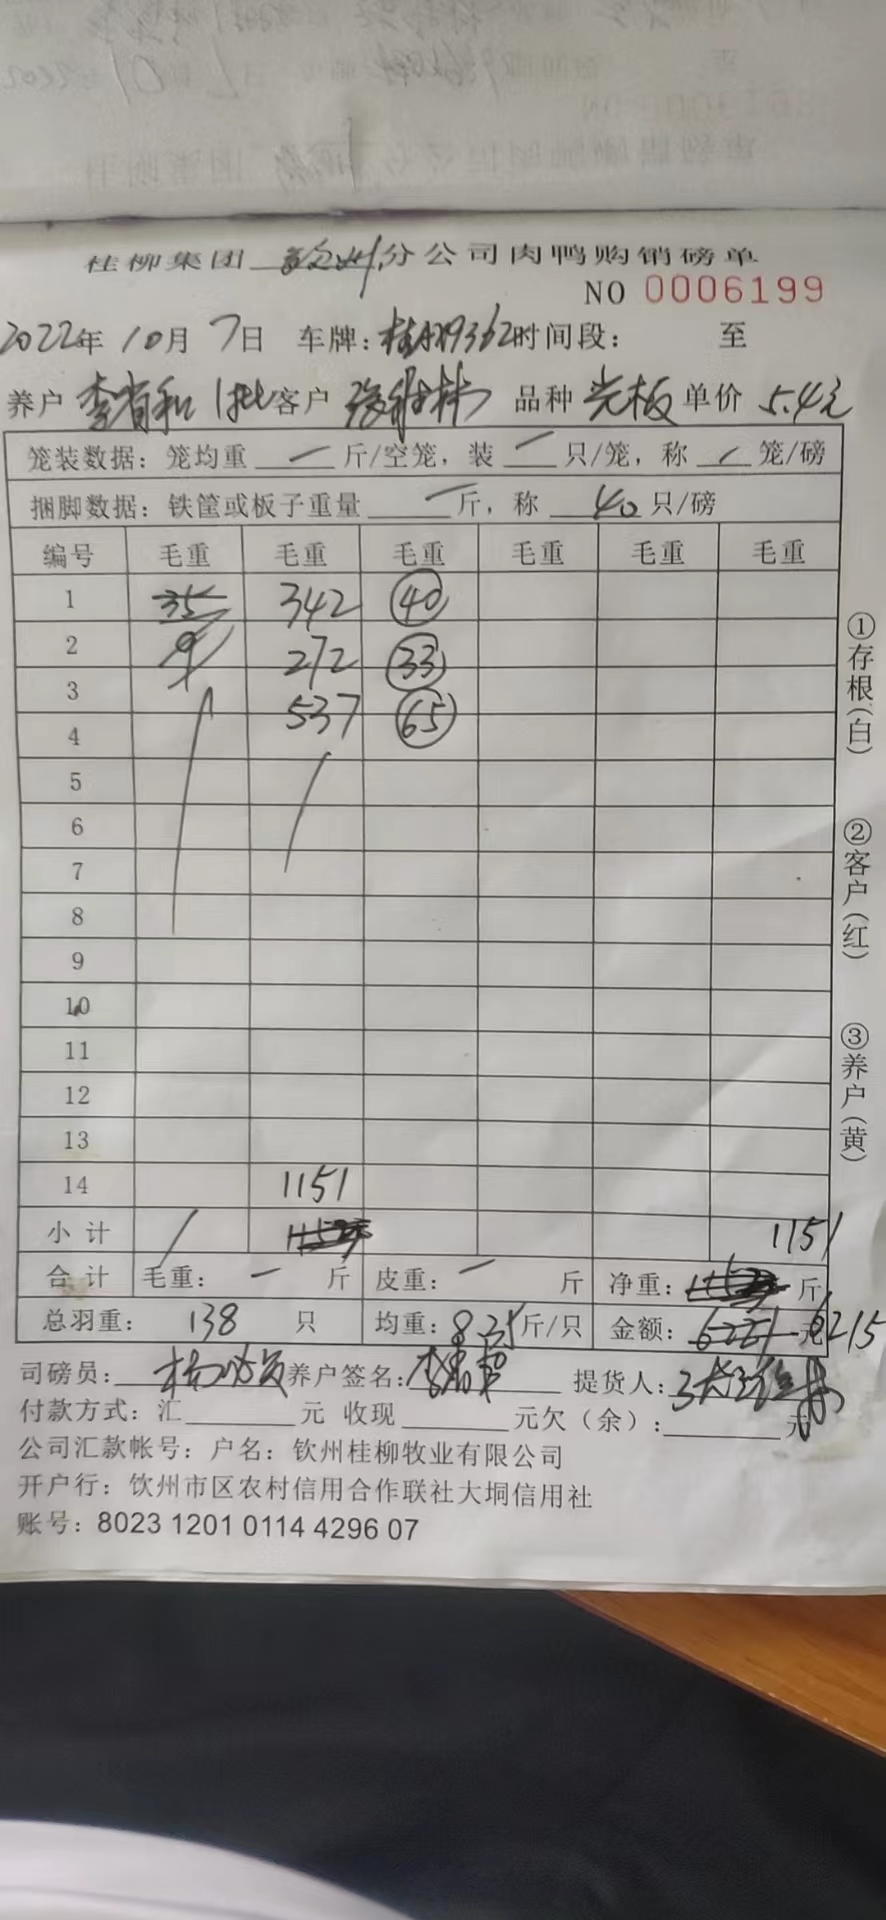 桂柳集团 钦州 分公司肉鸭购销磅单
NO 0006199
2022年 10月 7日 车牌: 时间段: 至
养户 李省和 1批 客户 张 林 品种 光板 单价 5.4元
笼装数据: 笼均重 — 斤/空笼, 装 — 只/笼, 称 — 笼/磅
捆脚数据: 铁筐或板子重量 — 斤, 称 40 只/磅
编号 毛重 毛重 毛重 毛重 毛重 毛重
1 35 342 40
2 9 272 33
3 537 65
4
5
6
7
8
9
10
11
12
13
14 1151
小计 1151
合计 毛重: — 斤 皮重: — 斤 净重: 斤
总羽重: 138 只 均重: 8.35 斤/只 金额: 元 6215
司磅员: 养户签名: 提货人:
付款方式: 汇 元 收现 元欠(余): 元
公司汇款帐号: 户名: 钦州桂柳牧业有限公司
开户行: 饮州市区农村信用合作联社大垌信用社
账号: 8023 1201 0114 4296 07
①存根(白)
②客户(红)
③养户(黄)